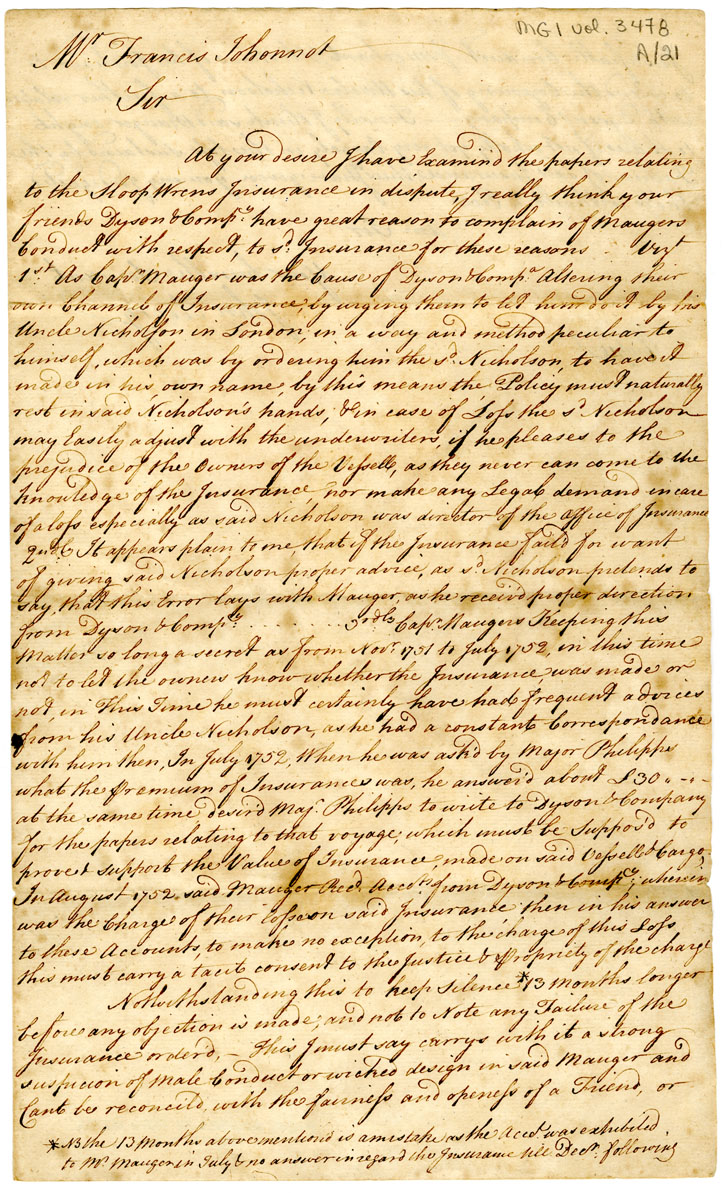 MG1 vol. 3478
A/21
Mr. Francis Johonnot
Sir
At your desire I have Examind the papers relating
to the Sloop Wrens Insurance in dispute, I really think your
friends Dyson & Compy. have great reason to complain of Maugers
Conduct with respect, to sd. Insurance for these reasons .. Vizt
1st. As Capt. Mauger was the Cause of Dyson & Compy. Altering their
own Channel of Insurance, by urging them to let him do it by his
Uncle Nicholson in London, in a way and method peculiar to
himself, which was by ordering him the sd. Nicholson, to have it
made in his own name, by this means the Policy must naturally
rest in said Nicholson's hands, & in case of Loss the sd. Nicholson
may Easily adjust with the underwriters, if he pleases to the
prejudice of the Owners of the Vessell, as they never can come to the
knowledge of the Insurance, nor make any Legal demand in case
of a loss especially as said Nicholson was director of the office of Insurance
2ndly It appears plain to me, that if the Insurance faild for want
of giving said Nicholson proper advice, as sd. Nicholson pretends to
say, that this Error lays with Mauger, as he receivd proper direction
from Dyson & Compy. .......... 3rdly Capt. Maugers Keeping this
Matter so long a secret as from Novr. 1751 to July 1752, in this time
not to let the owners know whether the Insurance, was made or
not, in This Time he must certainly have had frequent advices
from his Uncle Nicholson, as he had a constant Correspondance
with him then, In July 1752, When he was ask'd by Major Philipps
what the Premium of Insurances was, he answer'd about £30 ,, - ,, -
at the same time desird Majr. Philipps to write to Dyson & Company
for the papers relating to that voyage, which must be Suppos'd to
prove & support the Value of Insurance, made on said Vessell & Cargo,
In August 1752 said Mauger Recd. Accots from Dyson & Compy; wherein
was the Charge of their Losse on said Insurance then in his answer
to these Accounts to make no exception, to the charge of this Loss
this must carry a tacit consent to the Justice & Propriety of the charge
Notwithstanding this to keep Silence *13 months longer
before any objection is made, and not to Note any Failure of the
Insurance orderd, - This I must say carrys with it a strong
suspicion of Male Conduct or wicked design in said Mauger and
Cant be reconcild, with the fairness and openess of a Friend, or
* NB the 13 Months above mention'd is a mistake as the Acct. was exhibited
to Mr. Mauger in July & no answer in regard the Insurance till Decr. following